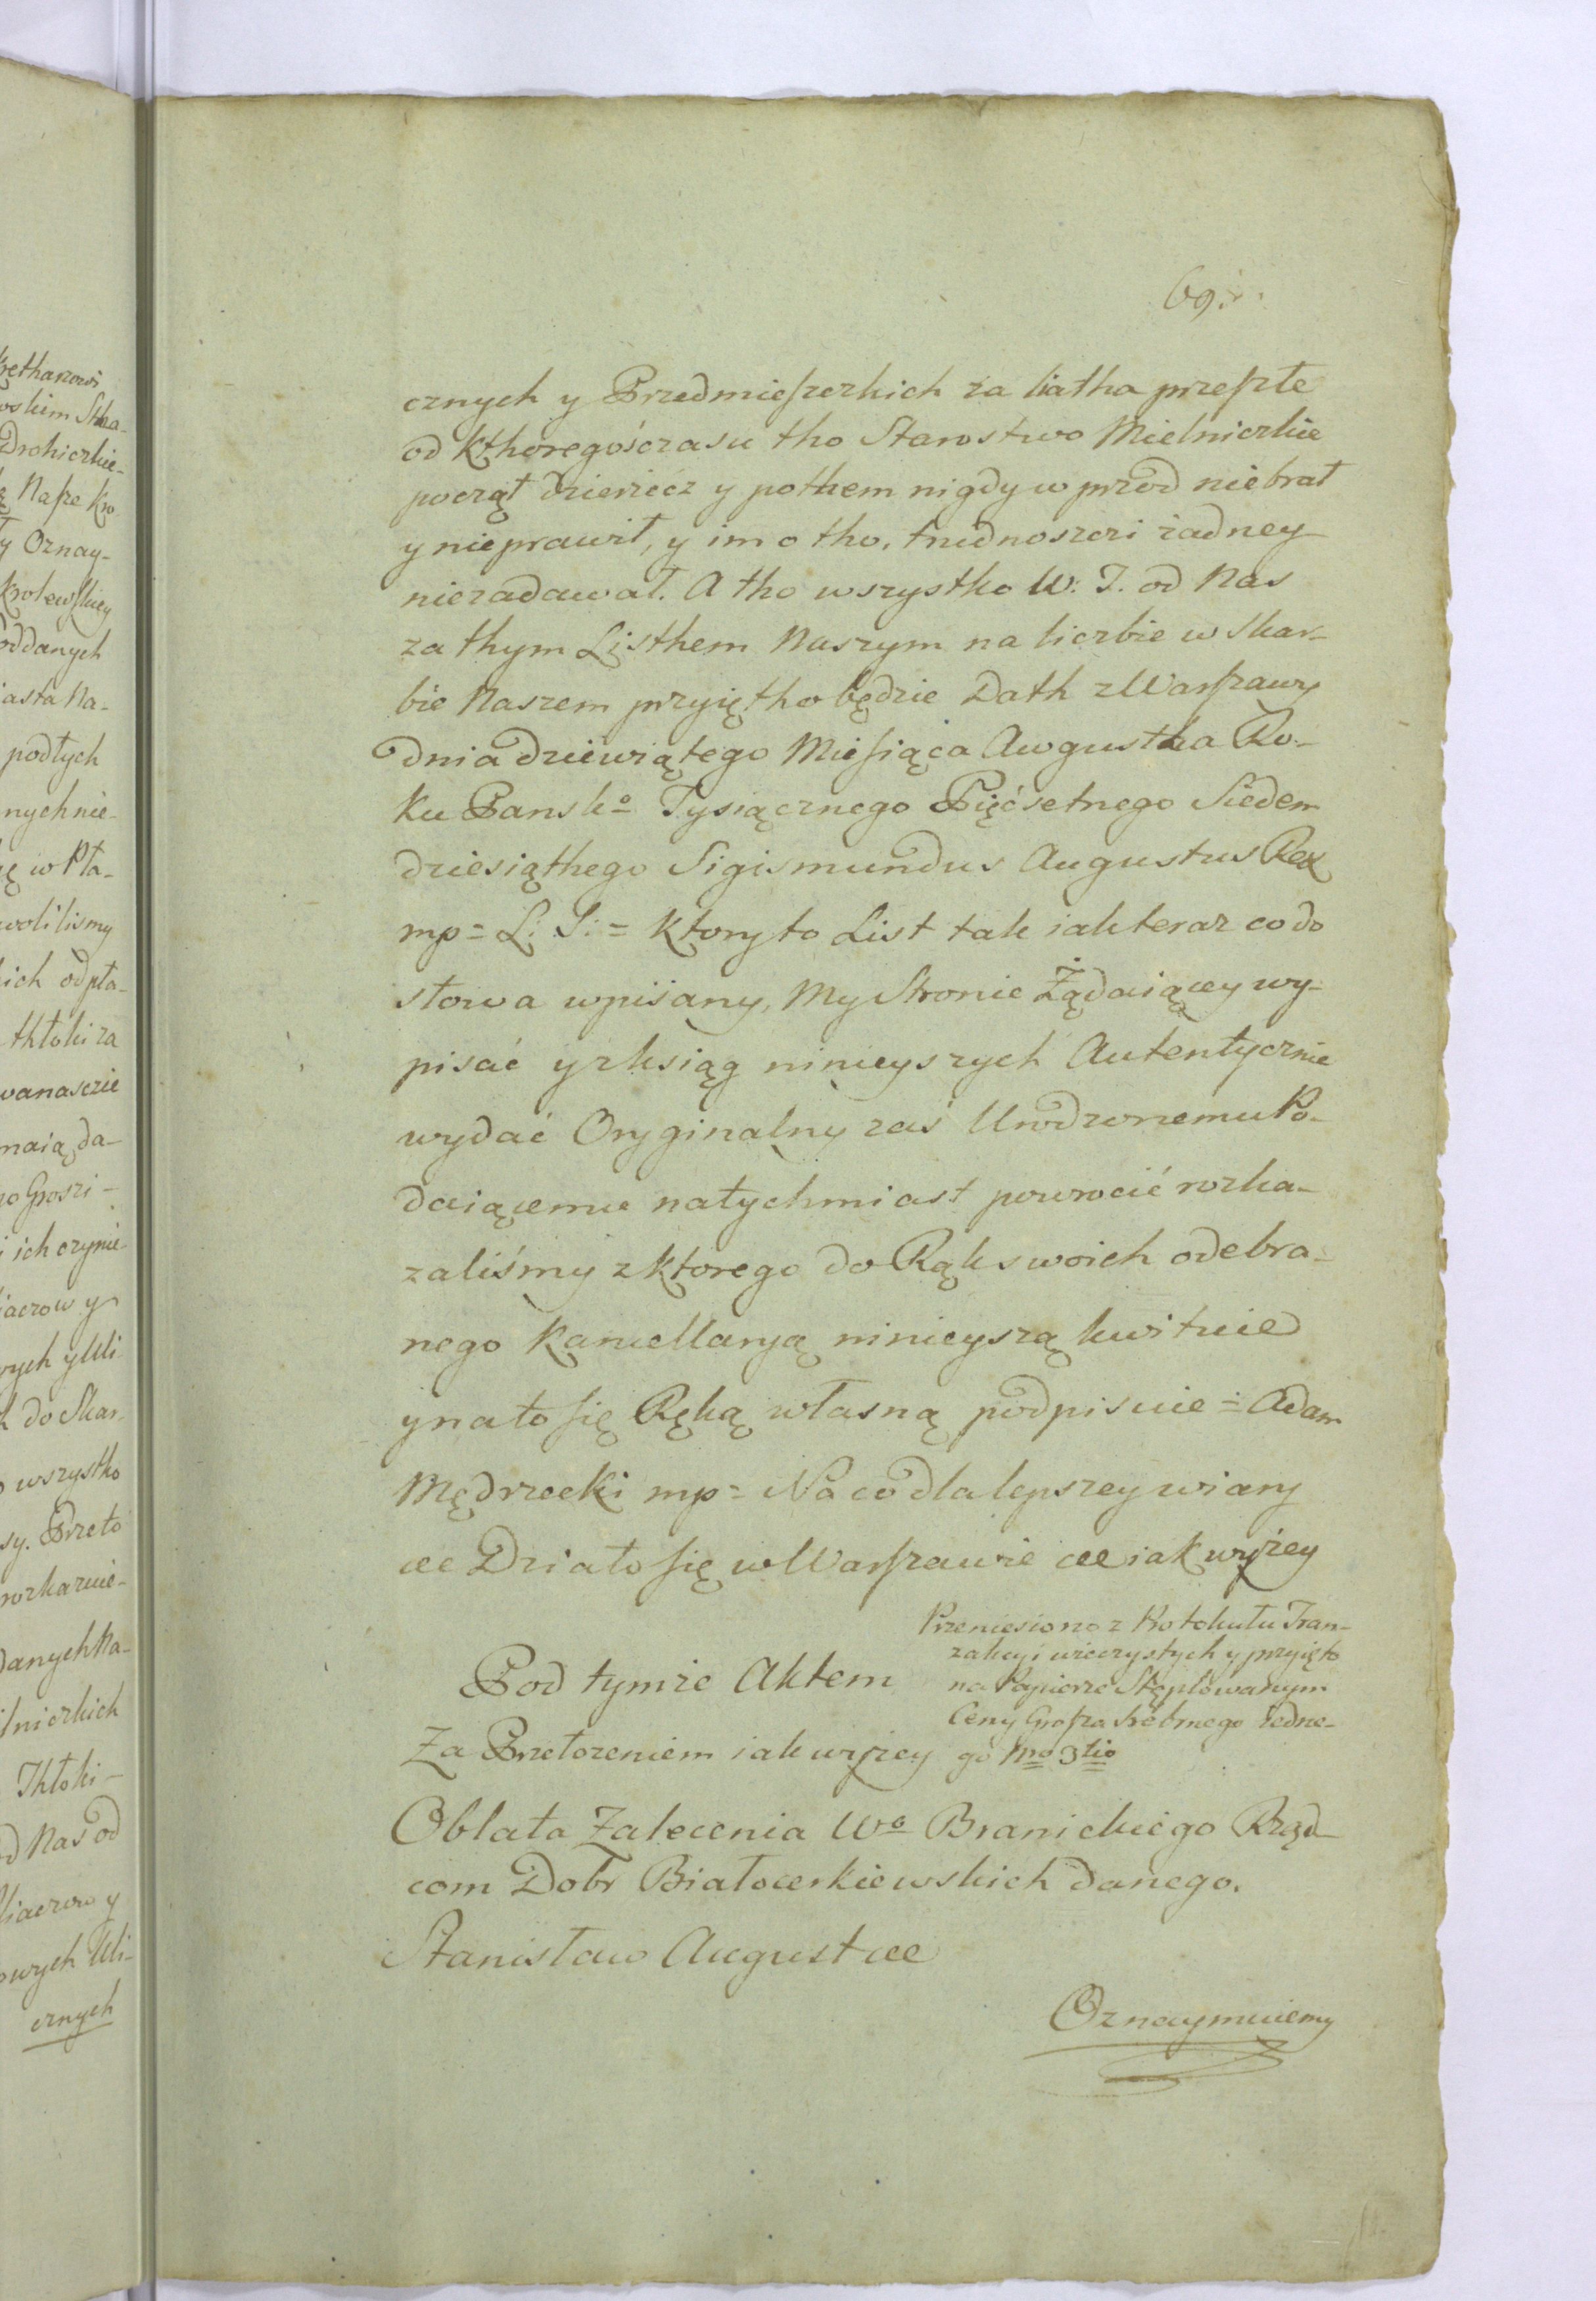 69.
cznych y Przedmieſzczkich za liatha przeſzłe
od kthoregoś czasu tho Starostwo Mielniczkie
począł dzierzécz y pothem nigdy w przód niebrał
y nieprawił, y im o tho, trudnoszczi żadney
niezadawał. A tho wszystko W: T. od Nas
za thym Listhem Naszym na liczbie w Skar-
bie Naszem przyiętho będzie Dath z Warſzawy
dnia dziewiątego Mieſiąca Awgustha Ro-
ku Pansko Tysiącznego Pięćsetnego Siedem
dziesiąthego Sigismundus Augustus Rex
mp = L: S: = ktory to List tak iak teraz co do
słowa wpisany, My Stronie Żądaiącey wy-
pisać y z ksiąg ninieyszych Autentycznie
wydać Oryginalny zaś Urodzonemu Po-
daiącemu natychmiast powrocić rozka-
zaliśmy z ktorego do Rąk swoich odebra-
nego Kancellaryą ninieyszą kwituie
y na to ſię Ręką własną podpisuie = Adam
Mędrzecki mp = Na co dla lepszey wiary
&c Działo ſię w Warſzawie &c iak wyżey
Przeniesiono z Protokułu Tran-
zakcyi wieczystych y przyięto
na Papierze Stęplowanym
Ceny Groſza Srebrnego iedne-
go Nro 3tio
Pod tymże Aktem
Za Przełożeniem iak wyżey
Oblata Zalecenia Wo Branickiego Rząd-
com Dobr Białocerkiewskich danego.
Stanisław August &c
Oznaymuiemy
kętharzowi
Drohiczkie-
ą Naſze Kro
y Oznay-
Krolewſkiey
oddanych
iasta Na-
podłych
nych nie-
ę w Pła-
wolilismy
ich odpła-
thłoki za
wanasczie
maią da-
o Groszi-
i ich czynie-
iaczow y
wych y Uli
k do Skar-
o wszystko
sy. Przeto
rozkazuie-
danych Na-
ilniczkich
Thłoki-
d Nas od
liaczow y
owych Uli-
cznych